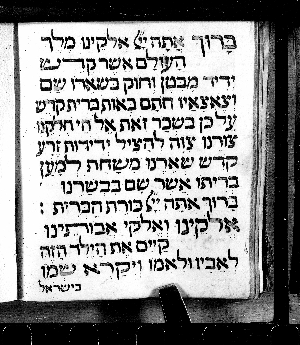 ברוך אתה ייי אלקינו מלך
העולם אשר קדש
ידיד מבטן וחוק בשארו שם
וצאצאיו חתם באות ברית קדש
על כן בשכר זאת אל חי חלקנו
צורנו צוה להציל ידידות זרע
קדש שארנו משחת למען
בריתו אשר שם בבשרנו
ברוך אתה ייי כורת הברית :
אלקינו ואלקי אבותינו
קיים את הילד הזה
לאביו ולאמו ויקרא שמו
בישראל